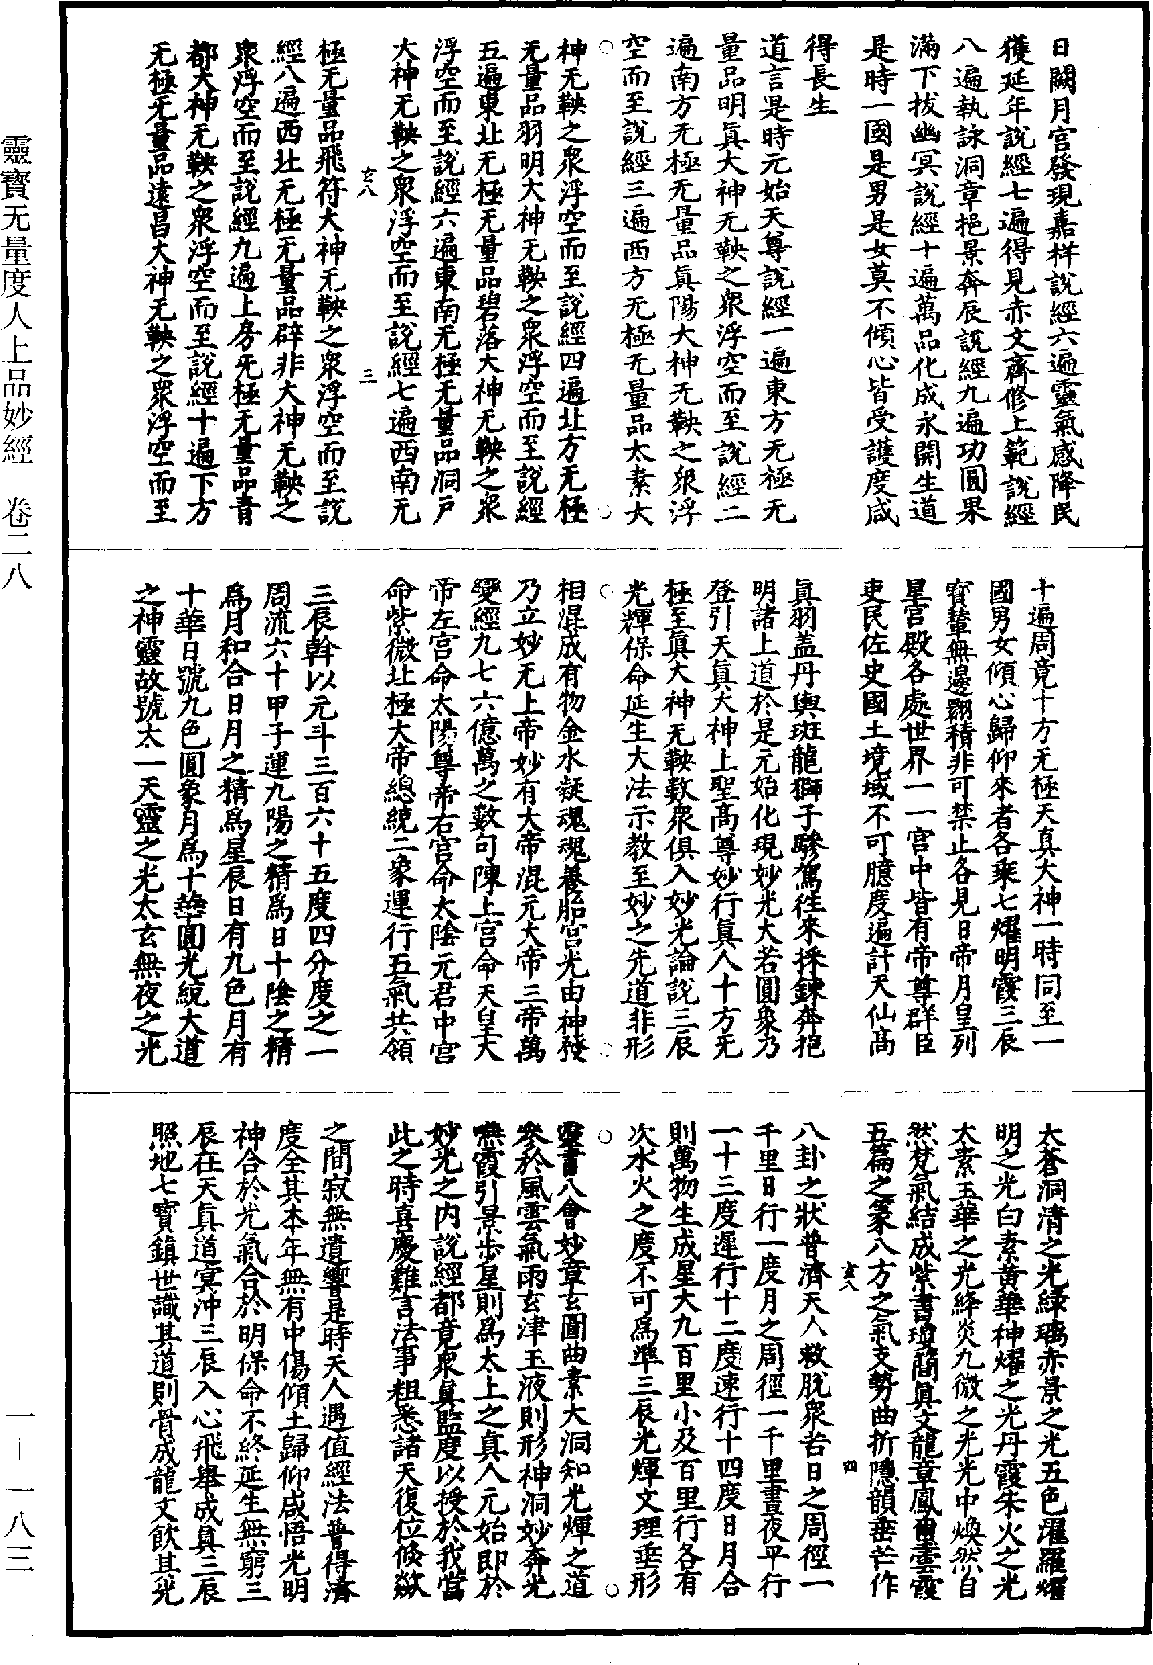 日闕月宮發現嘉祥說經六遍靈氣感降民
獲延年說經七遍得見赤文齋修上範說經
八遍執詠洞章挹景奔辰說經九遍功圓果
滿下拔幽冥說經十遍萬品化成永開生道
是時一國是男是女莫不傾心皆受護度咸
得長生
道言是時元始天尊說經一遍東方无極无
量品明真大神无鞅之衆浮空而至說經二
遍南方无極无量品真陽大神无鞅之衆浮
空而至說經三遍西方无極无量品太素大
神无鞅之衆浮空而至說經四遍北方无極
无量品羽明大神无鞅之衆浮空而至說經
五遍東北无極无量品碧落大神无鞅之衆
浮空而至說經六遍東南无極无量品洞戶
大神无鞅之衆浮空而至說經七遍西南无
玄八 三
極无量品飛符大神无鞅之衆浮空而至說
經八遍西北无極无量品辟非大神无鞅之
衆浮空而至說經九遍上方无極无量品青
都大神无鞅之衆浮空而至說經十遍下方
无極无量品遠昌大神无鞅之衆浮空而至
十遍周竟十方无極天真大神一時同至一
國男女傾心歸仰來者各乘七耀明霞三辰
寶輦無邊翻積非可禁止各見日帝月皇列
星宮殿各處世界一一宮中皆有帝尊群臣
吏民佐史國土境域不可臆度遍計天仙高
真羽蓋丹輿斑龍獅子驂駕往來採鍊奔抱
明諸上道於是元始化現妙光大若圓象乃
登引天真大神上聖高尊妙行真人十方无
極至真大神无鞅數衆俱入妙光論說三辰
光輝保命延生大法示教至妙之先道非形
相混成有物金水凝魂魂養胎宮光由神發
乃立妙无上帝妙有大帝混元大帝三帝萬
變經九七六億萬之數句陳上宮命天皇大
帝左宮命太陽尊帝右宮命太陰元君中宮
命紫微北極大帝總統二象運行五氣共領
三辰斡以元斗三百六十五度四分度之一
周流六十甲子運九陽之精為日十陰之精
為月和合日月之精為星辰日有九色月有
十華日號九色圓象月為十華圓光統大道
之神靈故號太一天靈之光太玄無夜之光
太蒼洞清之光綠璃赤景之光五色濯羅耀
明之光白素黃華神耀之光丹霞朱火之光
太素玉華之光絳炎九微之光光中煥然自
然梵氣結成紫書瓊簡真文龍章鳳書雲霞
五篇之篆八方之氣支勢曲折隱韻垂芒作
玄八 四
八卦之狀普濟天人救脫衆苦日之周徑一
千里日行一度月之周徑一千里晝夜平行
一十三度遲行十二度速行十四度日月合
則萬物生成星大九百里小及百里行各有
次水火之度不可為準三辰光輝文理垂形
靈書八會妙章玄圖曲素大洞知光輝之道
參於風雲氣雨玄津玉液則形神洞妙奔光
嚥霞引景步星則為太上之真人元始即於
妙光之內說經都竟衆真監度以授於我當
此之時喜慶難言法事粗悉諸天復位倏歘
之間寂無遺響是時天人遇值經法普得濟
度全其本年無有中傷傾土歸仰咸悟光明
神合於光氣合於明保命不終延生無窮三
辰在天真道冥沖三辰入心飛舉成真三辰
照地七寶鎮世識其道則骨成龍文飲其光
靈寶无量度人上品妙經 卷二八
一—一八三